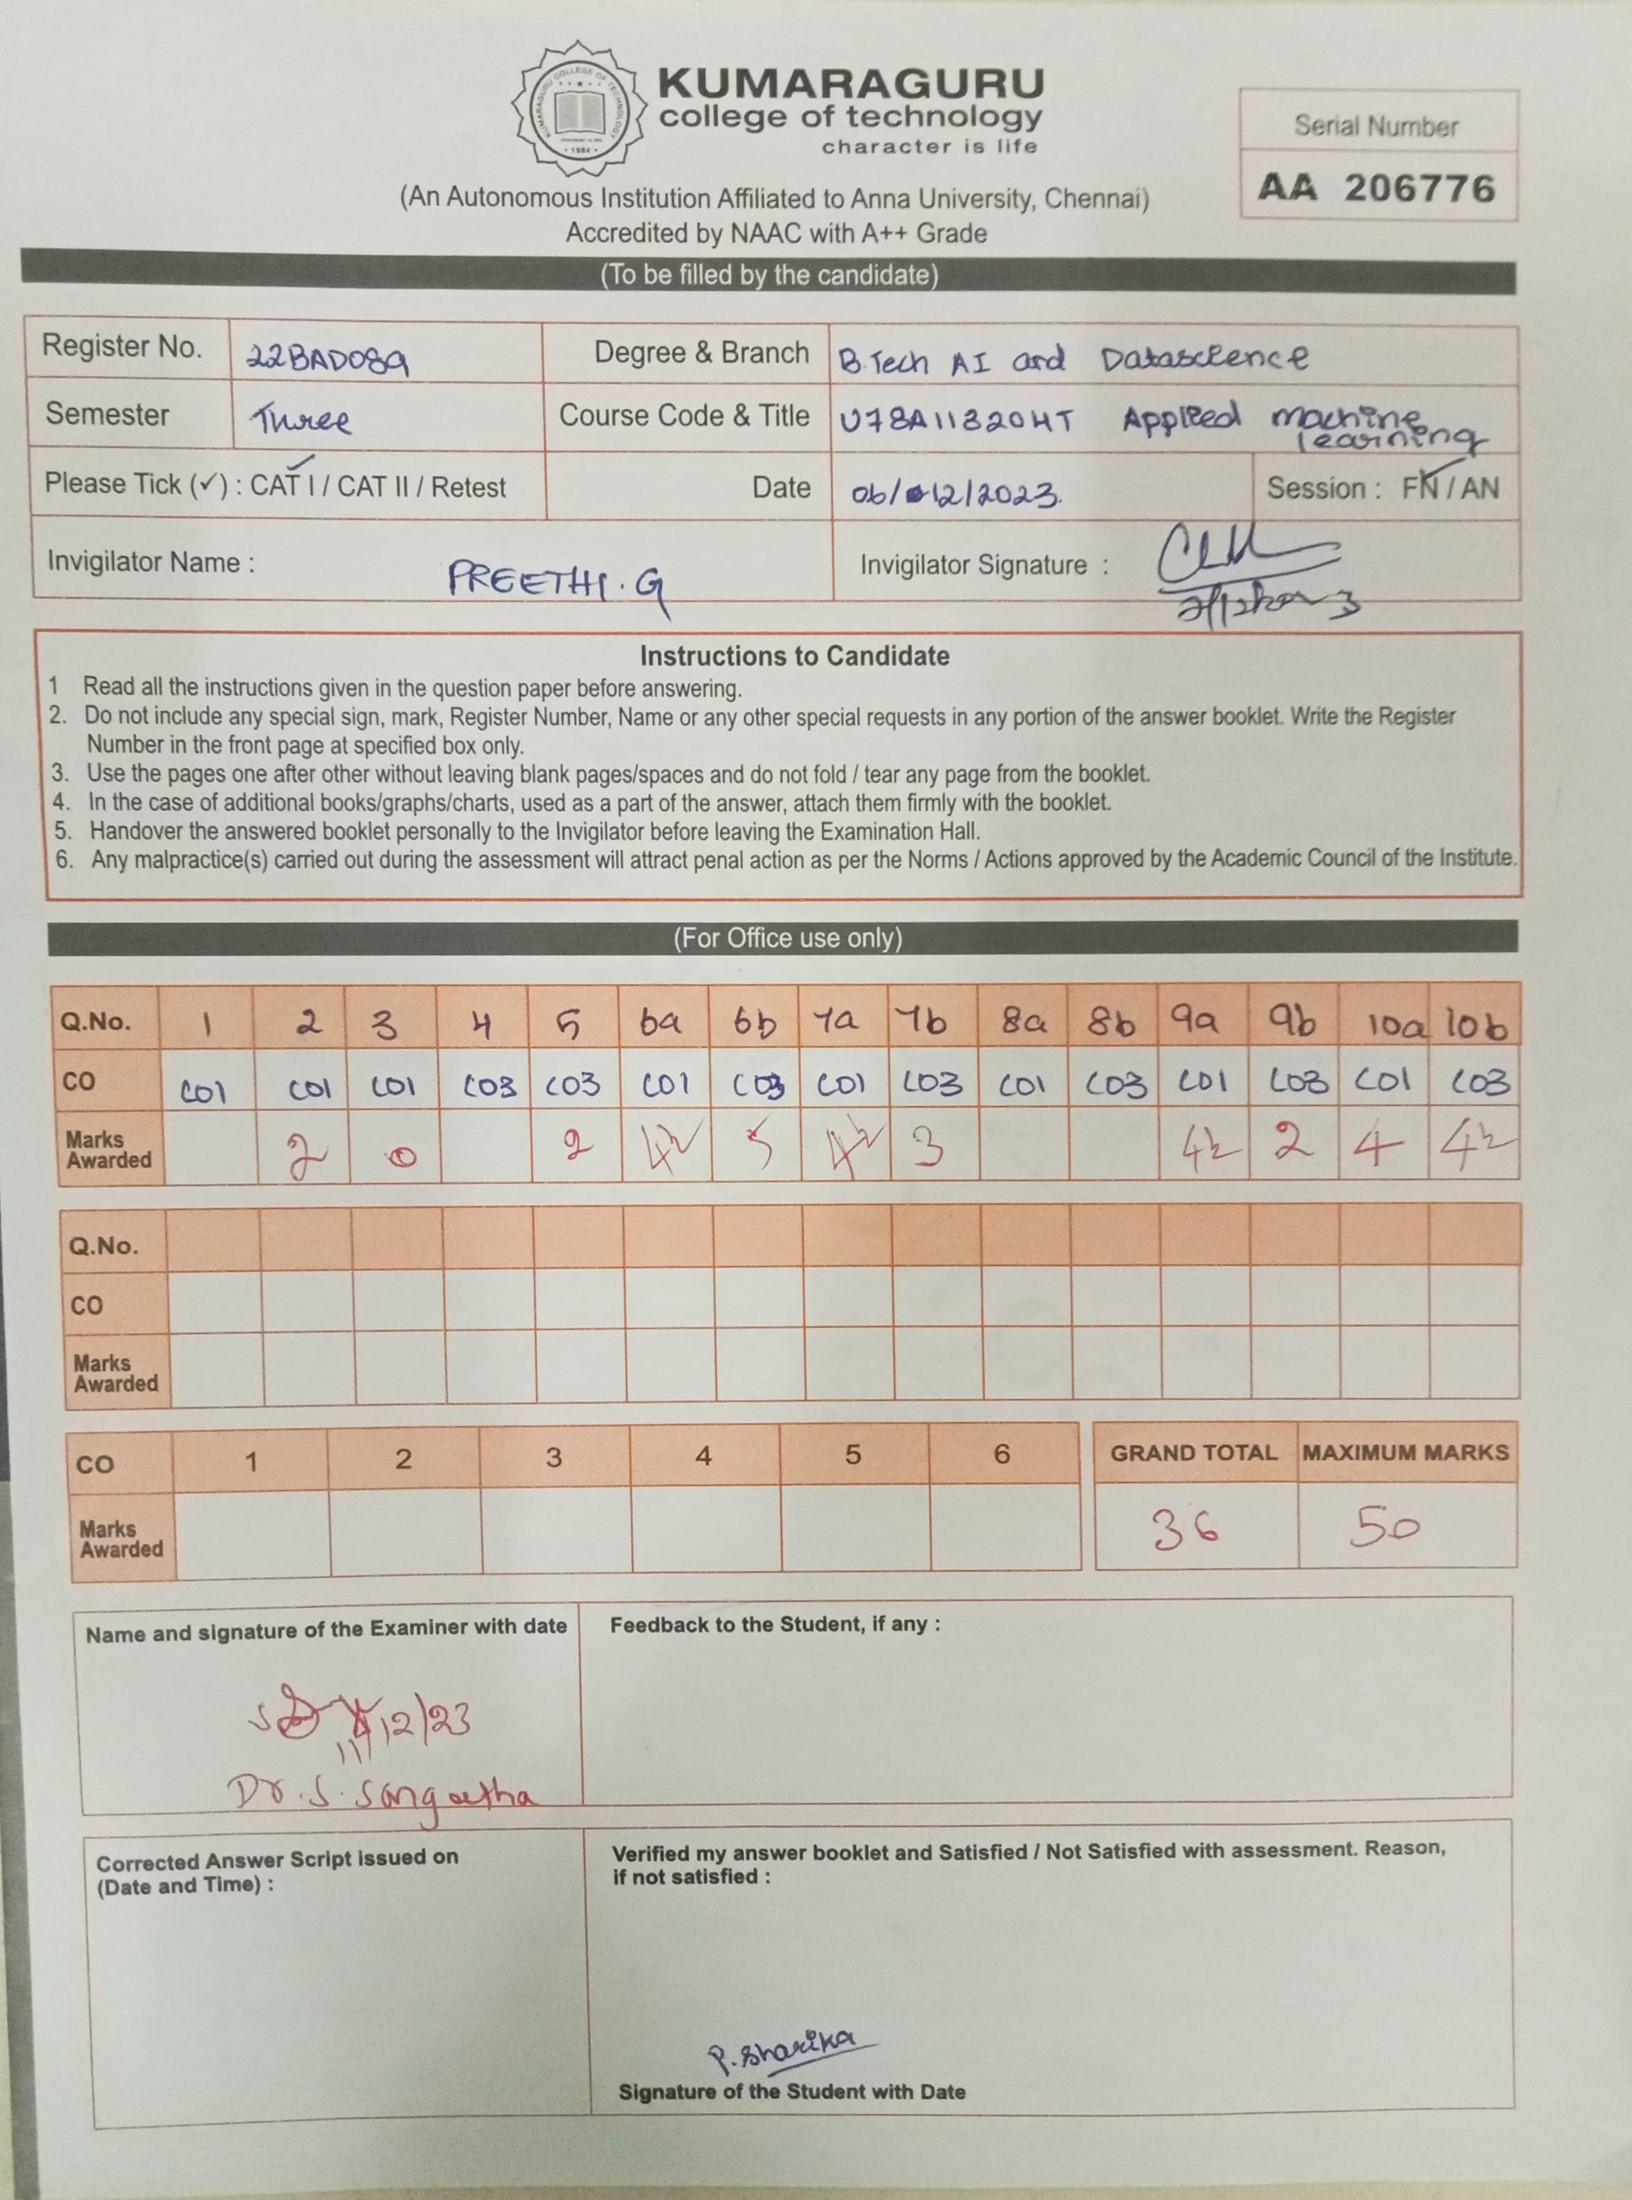 KUMARAGURU COLLEGE OF TECHNOLOGY
1984
KUMARAGURU
college of technology
character is life
Serial Number
AA 206776
(An Autonomous Institution Affiliated to Anna University, Chennai)
Accredited by NAAC with A++ Grade
(To be filled by the candidate)
Register No. 22BAD089 Degree & Branch B.Tech AI and Datascience
Semester Three Course Code & Title U78A113204T Applied machine learning
Please Tick (✓) : CAT I / CAT II / Retest Date 06/12/2023. Session : FN / AN
Invigilator Name : PREETHI.G Invigilator Signature :
Instructions to Candidate
1 Read all the instructions given in the question paper before answering.
2. Do not include any special sign, mark, Register Number, Name or any other special requests in any portion of the answer booklet. Write the Register
Number in the front page at specified box only.
3. Use the pages one after other without leaving blank pages/spaces and do not fold / tear any page from the booklet.
4. In the case of additional books/graphs/charts, used as a part of the answer, attach them firmly with the booklet.
5. Handover the answered booklet personally to the Invigilator before leaving the Examination Hall.
6. Any malpractice(s) carried out during the assessment will attract penal action as per the Norms / Actions approved by the Academic Council of the Institute.
(For Office use only)
Q.No. 1 2 3 4 5 6a 6b 7a 7b 8a 8b 9a 9b 10a 10b
CO CO1 CO1 CO1 CO3 CO3 CO1 CO3 CO1 CO3 CO1 CO3 CO1 CO3 CO1 CO3
Marks Awarded 2 0 2 4½ 5 4½ 3 4½ 2 4 4½
Q.No.
CO
Marks Awarded
CO 1 2 3 4 5 6 GRAND TOTAL MAXIMUM MARKS
Marks Awarded 36 50
Name and signature of the Examiner with date Feedback to the Student, if any :
12/23
Dr.S.Sangeetha
Corrected Answer Script issued on
(Date and Time) :
Verified my answer booklet and Satisfied / Not Satisfied with assessment. Reason,
if not satisfied :
P.Sharika
Signature of the Student with Date